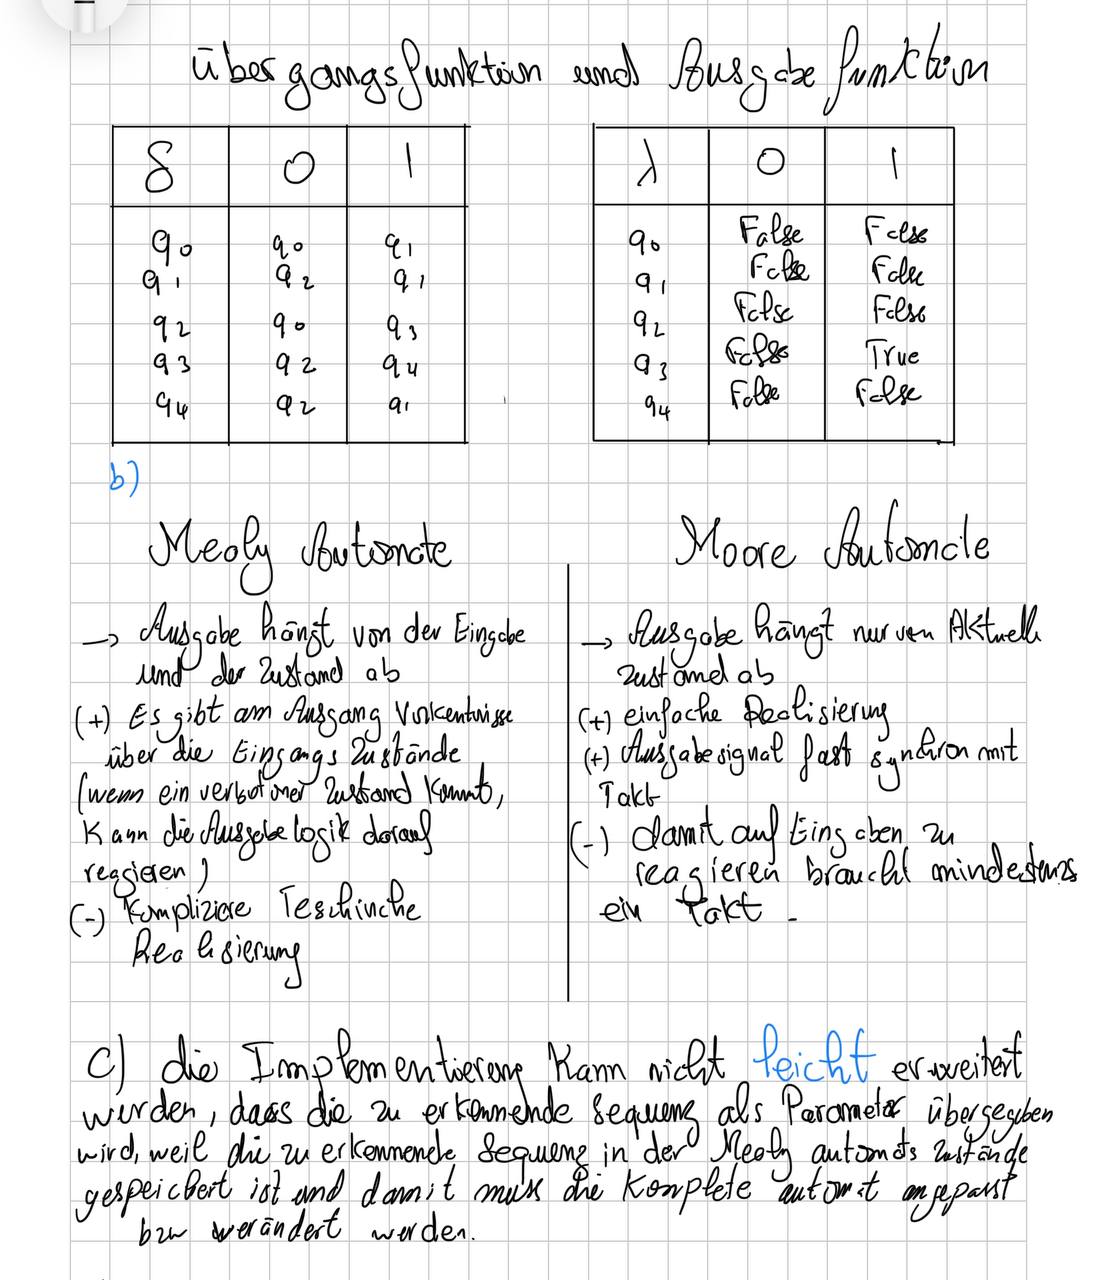 Übergangsfunktion und Ausgabefunktion
δ 0 1
q0 q0 q1
q1 q2 q1
q2 q0 q3
q3 q2 q4
q4 q2 q1
λ 0 1
q0 False False
q1 False False
q2 False False
q3 False True
q4 False False
b)
Mealy Automate
→ Ausgabe hängt von der Eingabe
und der Zustand ab
(+) Es gibt am Ausgang
über die Eingangs Zustände
(wenn ein verbotener Zustand kommt,
Kann die Ausgabe logik darauf
reagieren)
(-) Kompliziere
Realisierung
Moore Automate
→ Ausgabe hängt nur von Aktuell
Zustand ab
(+) einfache Realisierung
(+) Ausgabesignal fast synchron mit
Takt
(-) damit auf Eingaben zu
reagieren braucht mindestens
ein Takt.
C) die Implementierung Kann nicht leicht erweitert
werden, dass die zu erkennende Sequenz als Parameter übergegeben
wird, weil die zu erkennende Sequenz in der Mealy automats zustände
gespeichert ist und damit muss die Komplete automat angepasst
bzw verändert werden.